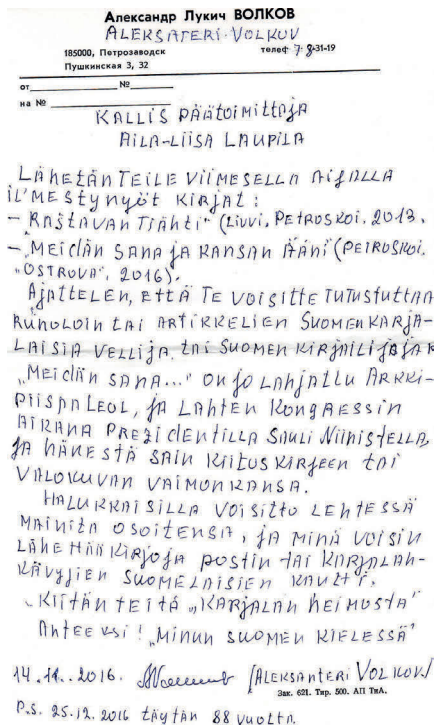 Александр Лукич ВОЛКОВ
ALEKSATERI VOLKOV
185000, Петрозаводск телеф 7-8-31-19
Пушкинская 3, 32
от №
на №
KALLIS PÄÄTOIMITTAJA
AILA-LIISA LAUPILA
LÄHETÄN TEILE VIIMESELLA AIGALLA
IL'MESTYNYÖT KIRJAT:
– „RAŠTAVAN TIÄHTI" (LIVVI. PETROSKOI. 2013.
– „MEIDÄN SANA JA KANSAN ÄÄNI (PETROSKOI.
„OSTROVA", 2016).
AJATTELEN, ETTÄ TE VOISITTE TUTUSTUTTAA
RUNOLOIN TAI ARTIKKELIEN SUOMENKARJA-
LAISIA VELLIJA, TAI SUOMEN KIRJAILIJAJA
„MEIDÄN SANA..." ON JO LAHJATTU ARKKI-
PIISPALEOL, JA LAHTEN KONGRESSIN
AIKANA PREZIDENTILLA SAULI NIINISTELLA,
JA HÄNESTÄ SAIN KIITUSKIRJEEN TAI
VALOKUVAN VAIMONKANSA.
HALUKKAISILLA VOISITTO LEHTESSÄ
MAINITA OSOITENSA, JA MINÄ VOISIN
LÄHETTÄÄ KIRJOJA POSTIN TAI KARJALAH-
KÄVYJIEN SUOMELAISIEN KAUTTI.
KIITÄN TEITÄ „KARJALAN HEIMOSTA"
ANTEEKSI! „MINUN SUOMEN KIELESSÄ"
14.11.2016. /ALEKSANTERI VOLKOV/
Зак. 621. Тир. 500. АП ТиА.
P.S. 25.12.2016 TÄYTÄN 88 VUOTTA.